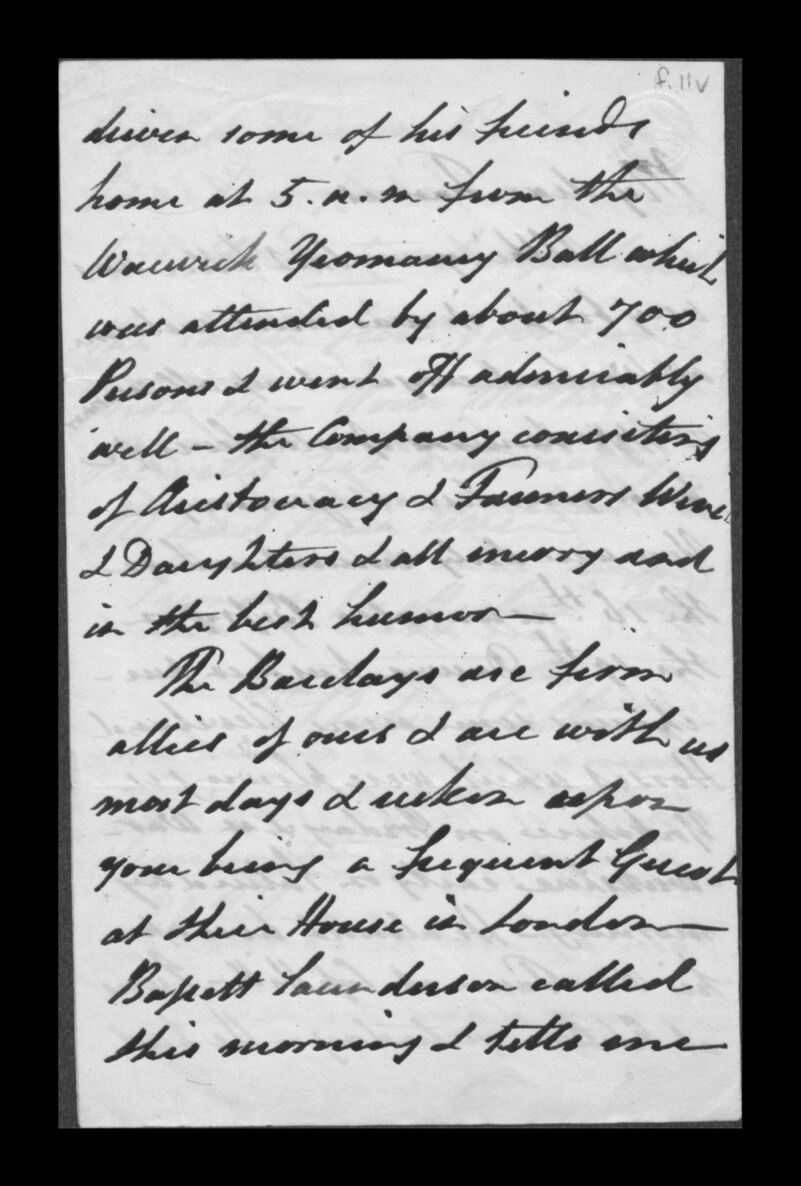 f.11v
driven some of his friends
home at 5. a. m from the
Warwick Yeomanry Ball which
was attended by about 700
Persons & went off admirably
well – the Company consisting
of Aristocracy & Farmers Wives
& Daughters & all merry and
in the best humor –
The Barclays are firm
allies of ours & are with us
most days & reckon upon
your being a frequent Guest
at their House in London –
Bassett Saunderson called
this morning & tells me